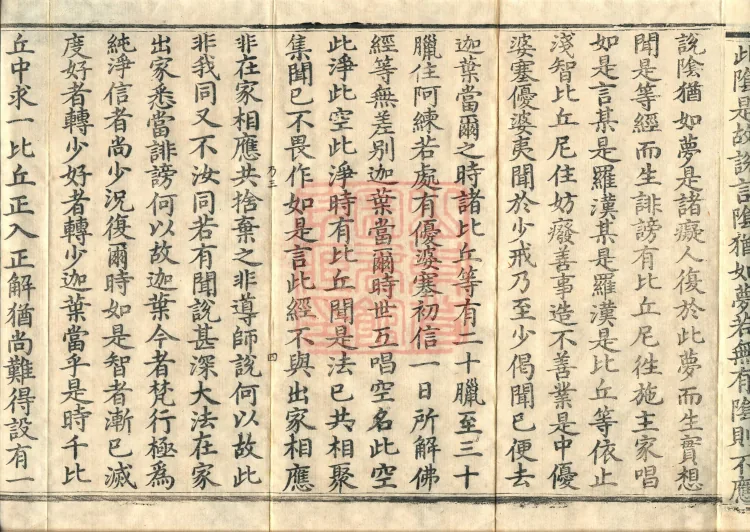 此陰是故説言陰猶如夢若無有陰則不應
說陰猶如夢是諸癡人復於此夢而生實想
聞是等經而生誹謗有比丘尼徃施主家唱
如是言某是羅漢某是羅漢是比丘等依止
淺智比丘尼住妨癈善事造不善業是中優
婆塞優婆夷聞於少戒乃至少偈聞已便去
迦葉當爾之時諸比丘等有二十臘至三十
臘住阿練若處有優婆塞初信一日所解佛
經等無差別迦葉當爾時世五唱空名此空
此淨此空此淨時有比丘聞是法已共相聚
集聞已不畏作如是言此經不與出家相應
乃三
四
非在家相應共捨棄之非導師說何以故此
非我同又不汝同若有聞說甚深大法在家
出家悉當誹謗何以故迦葉今者梵行極為
純淨信者尚少況復爾時如是智者漸已滅
度好者轉少好者轉少迦葉當乎是時千比
丘中求一比丘正入正解猶尚難得設有一